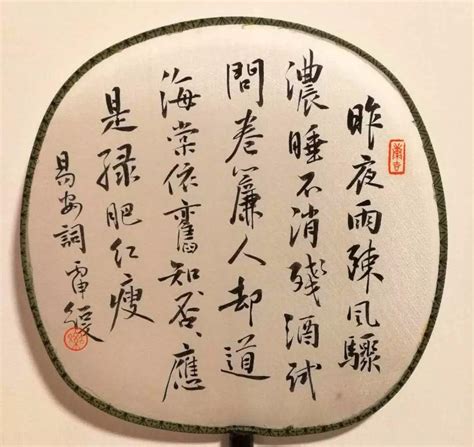 昨夜雨疎风驟
濃睡不消殘酒試
問卷簾人却道
海棠依舊知否、應
是緑肥红瘦
易安詞